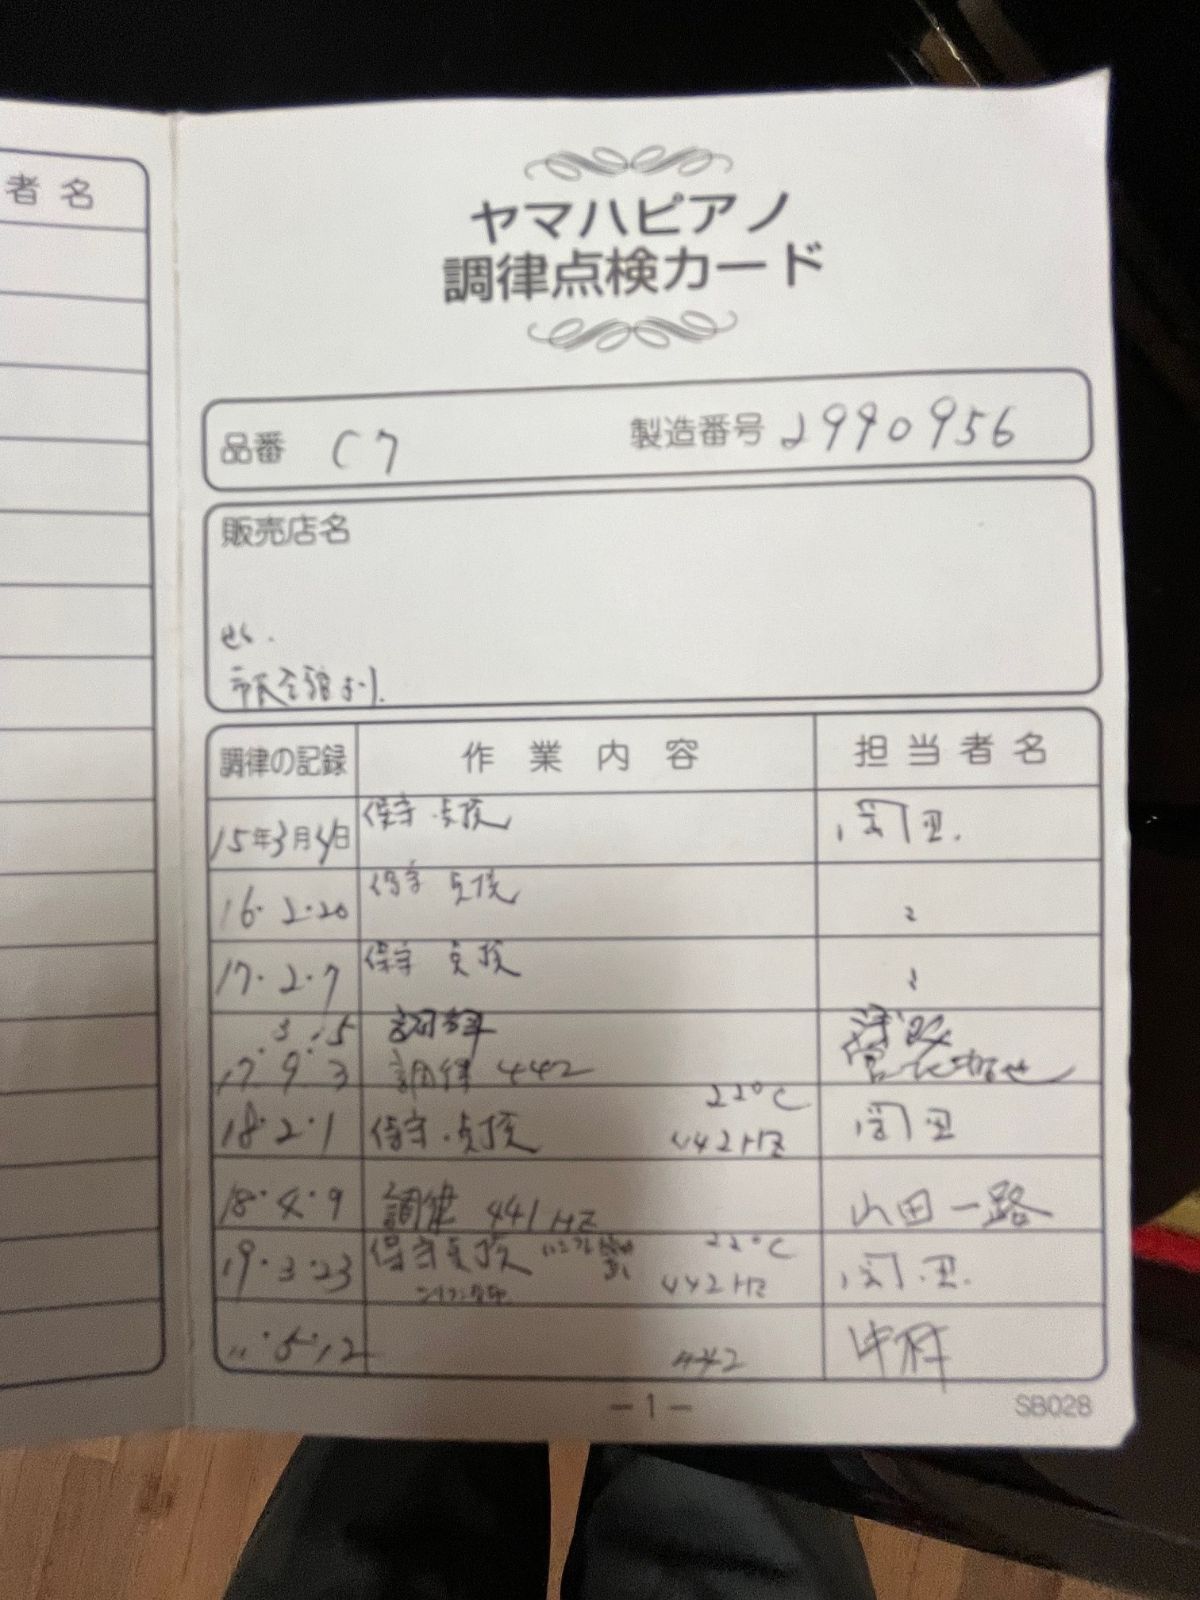 者名
ヤマハピアノ
調律点検カード
品番 C7 製造番号 2990956
販売店名
市民会館より.
調律の記録 作業内容 担当者名
15年3月4日 保守・点検
16・2・20 保守 点検 〃
17・2・7 保守 点検 〃
3・5 調律
17・9・3 調律 442
18・2・1 保守・点検 22°C 442HZ
18・4・9 調律 441HZ 山田一路
19・3・23 保守点検 22°C 442HZ
〃・5・12 442 中村
-1-
SB028